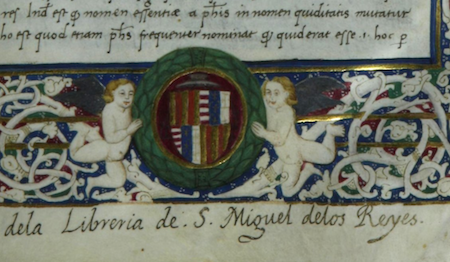 res Ind est q nomen essentiæ a phis in nomen quiditatis mutatur
ho est quod etiam phs frequenter nominat q quiderat esse .1. hoc p
dela Libreria de. S. Miguel delos Reyes.